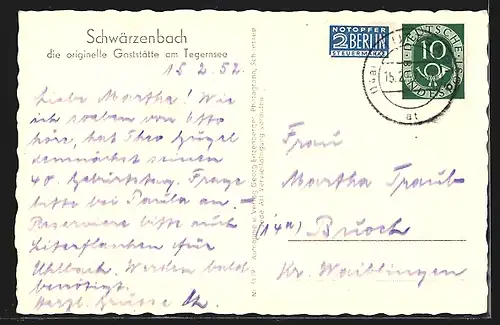 Schwärzenbach
die originelle Gaststätte am Tegernsee
15.2.52.
Liebe Martha! Wie
ich soeben von Otto
höre, hat Theo Gügel
demnächst seinen
40. Geburtstag. Frage
bitte bei Paula an.
Reserviere bitte auch
Literflaschen für
Uhlbach. Werden bald
benötigt.
Herzl. Grüsse
NOTOPFER
2 BERLIN
STEUERMARKE
DEUTSCHE
BUNDESPOST
10
15.2
at
Frau
Martha Traub
(14a) Buoch
Kr. Waiblingen